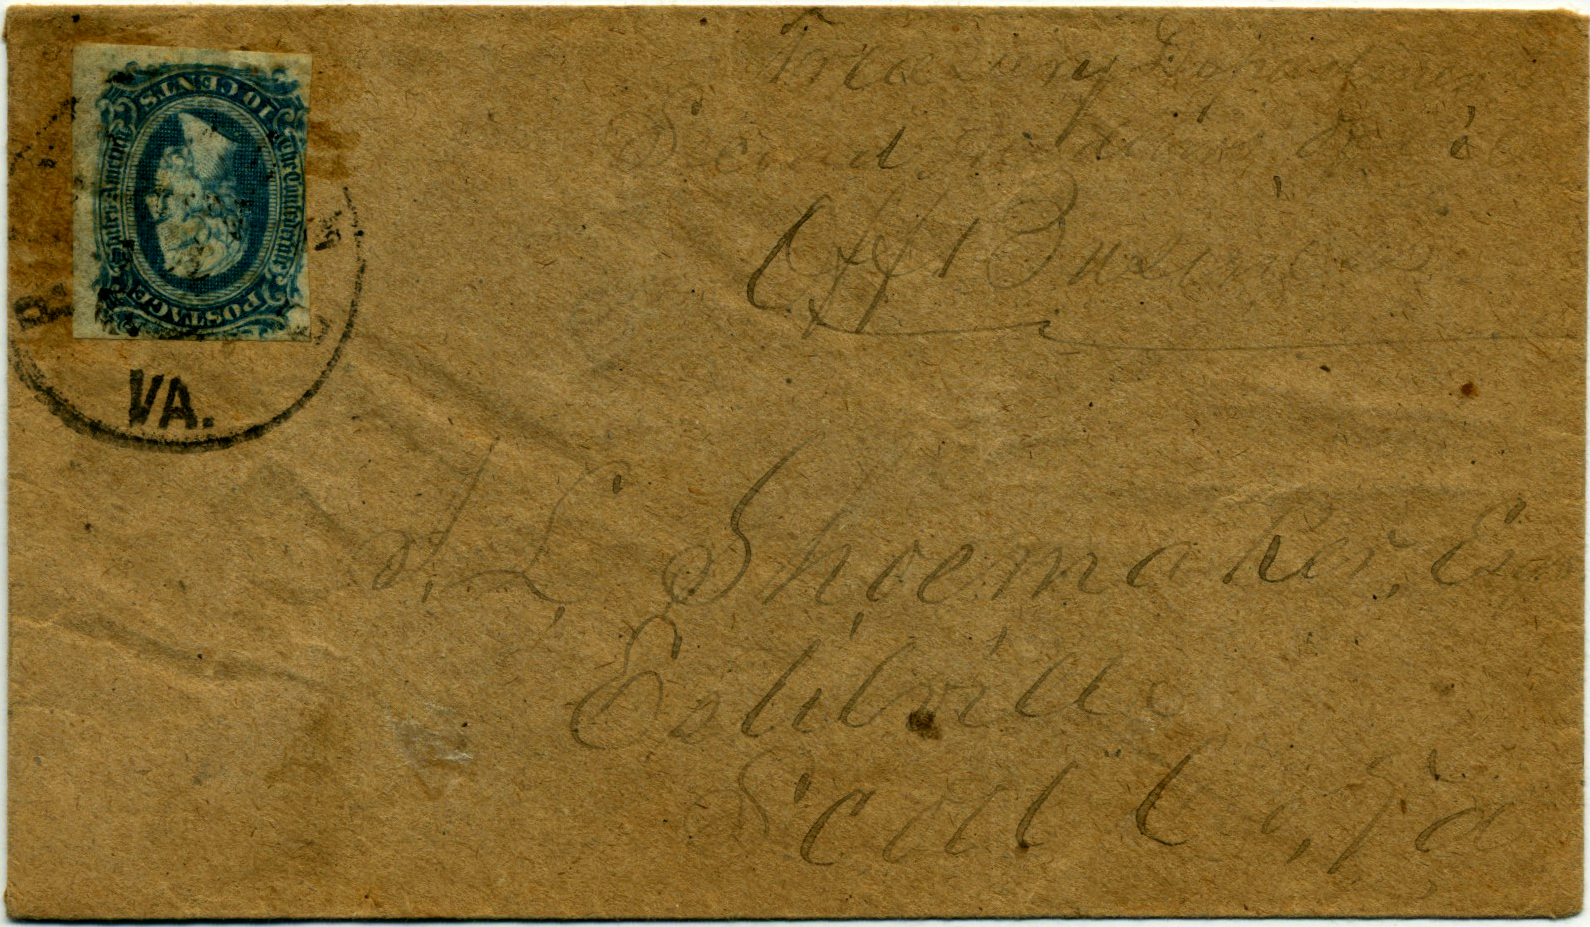 10 CENTS
The Confederate
States America
POSTAGE
VA.
Treasury Department
Second Auditor's Office
Offl Business
Shoemaker, Esq
Estilville
Scott Co, Va